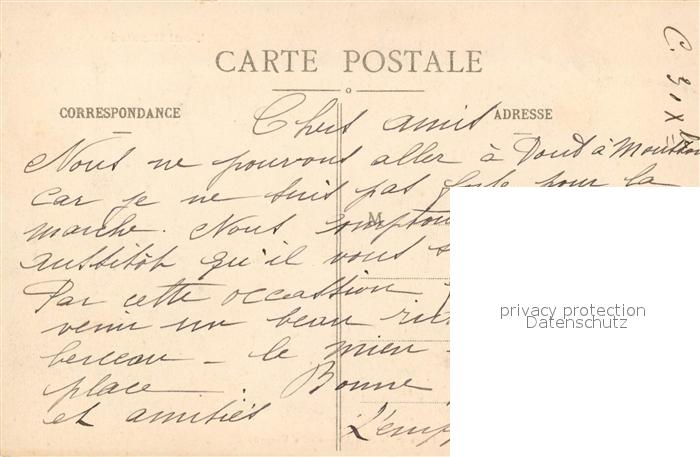 CARTE POSTALE
CORRESPONDANCE
ADRESSE
Chers amis
Nous ne pouvons aller à Pont à Mousson
car je ne suis pas forte pour la
marche. Nous comptons
M
aussitôt qu'il vous
Par cette occassion
venir un beau
berceau - le mien
place. Bonne
et amitiés
privacy protection
Datenschutz